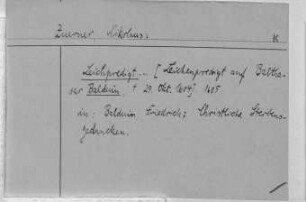 Zuerner Nikolaus: K
Leichpredigt... [Leichenpredigt auf Baltha-
sar Balduin † 29. Okt. 1604] 1605.
in: Balduin, Friedrich: Christliche Sterbens-
gedancken.